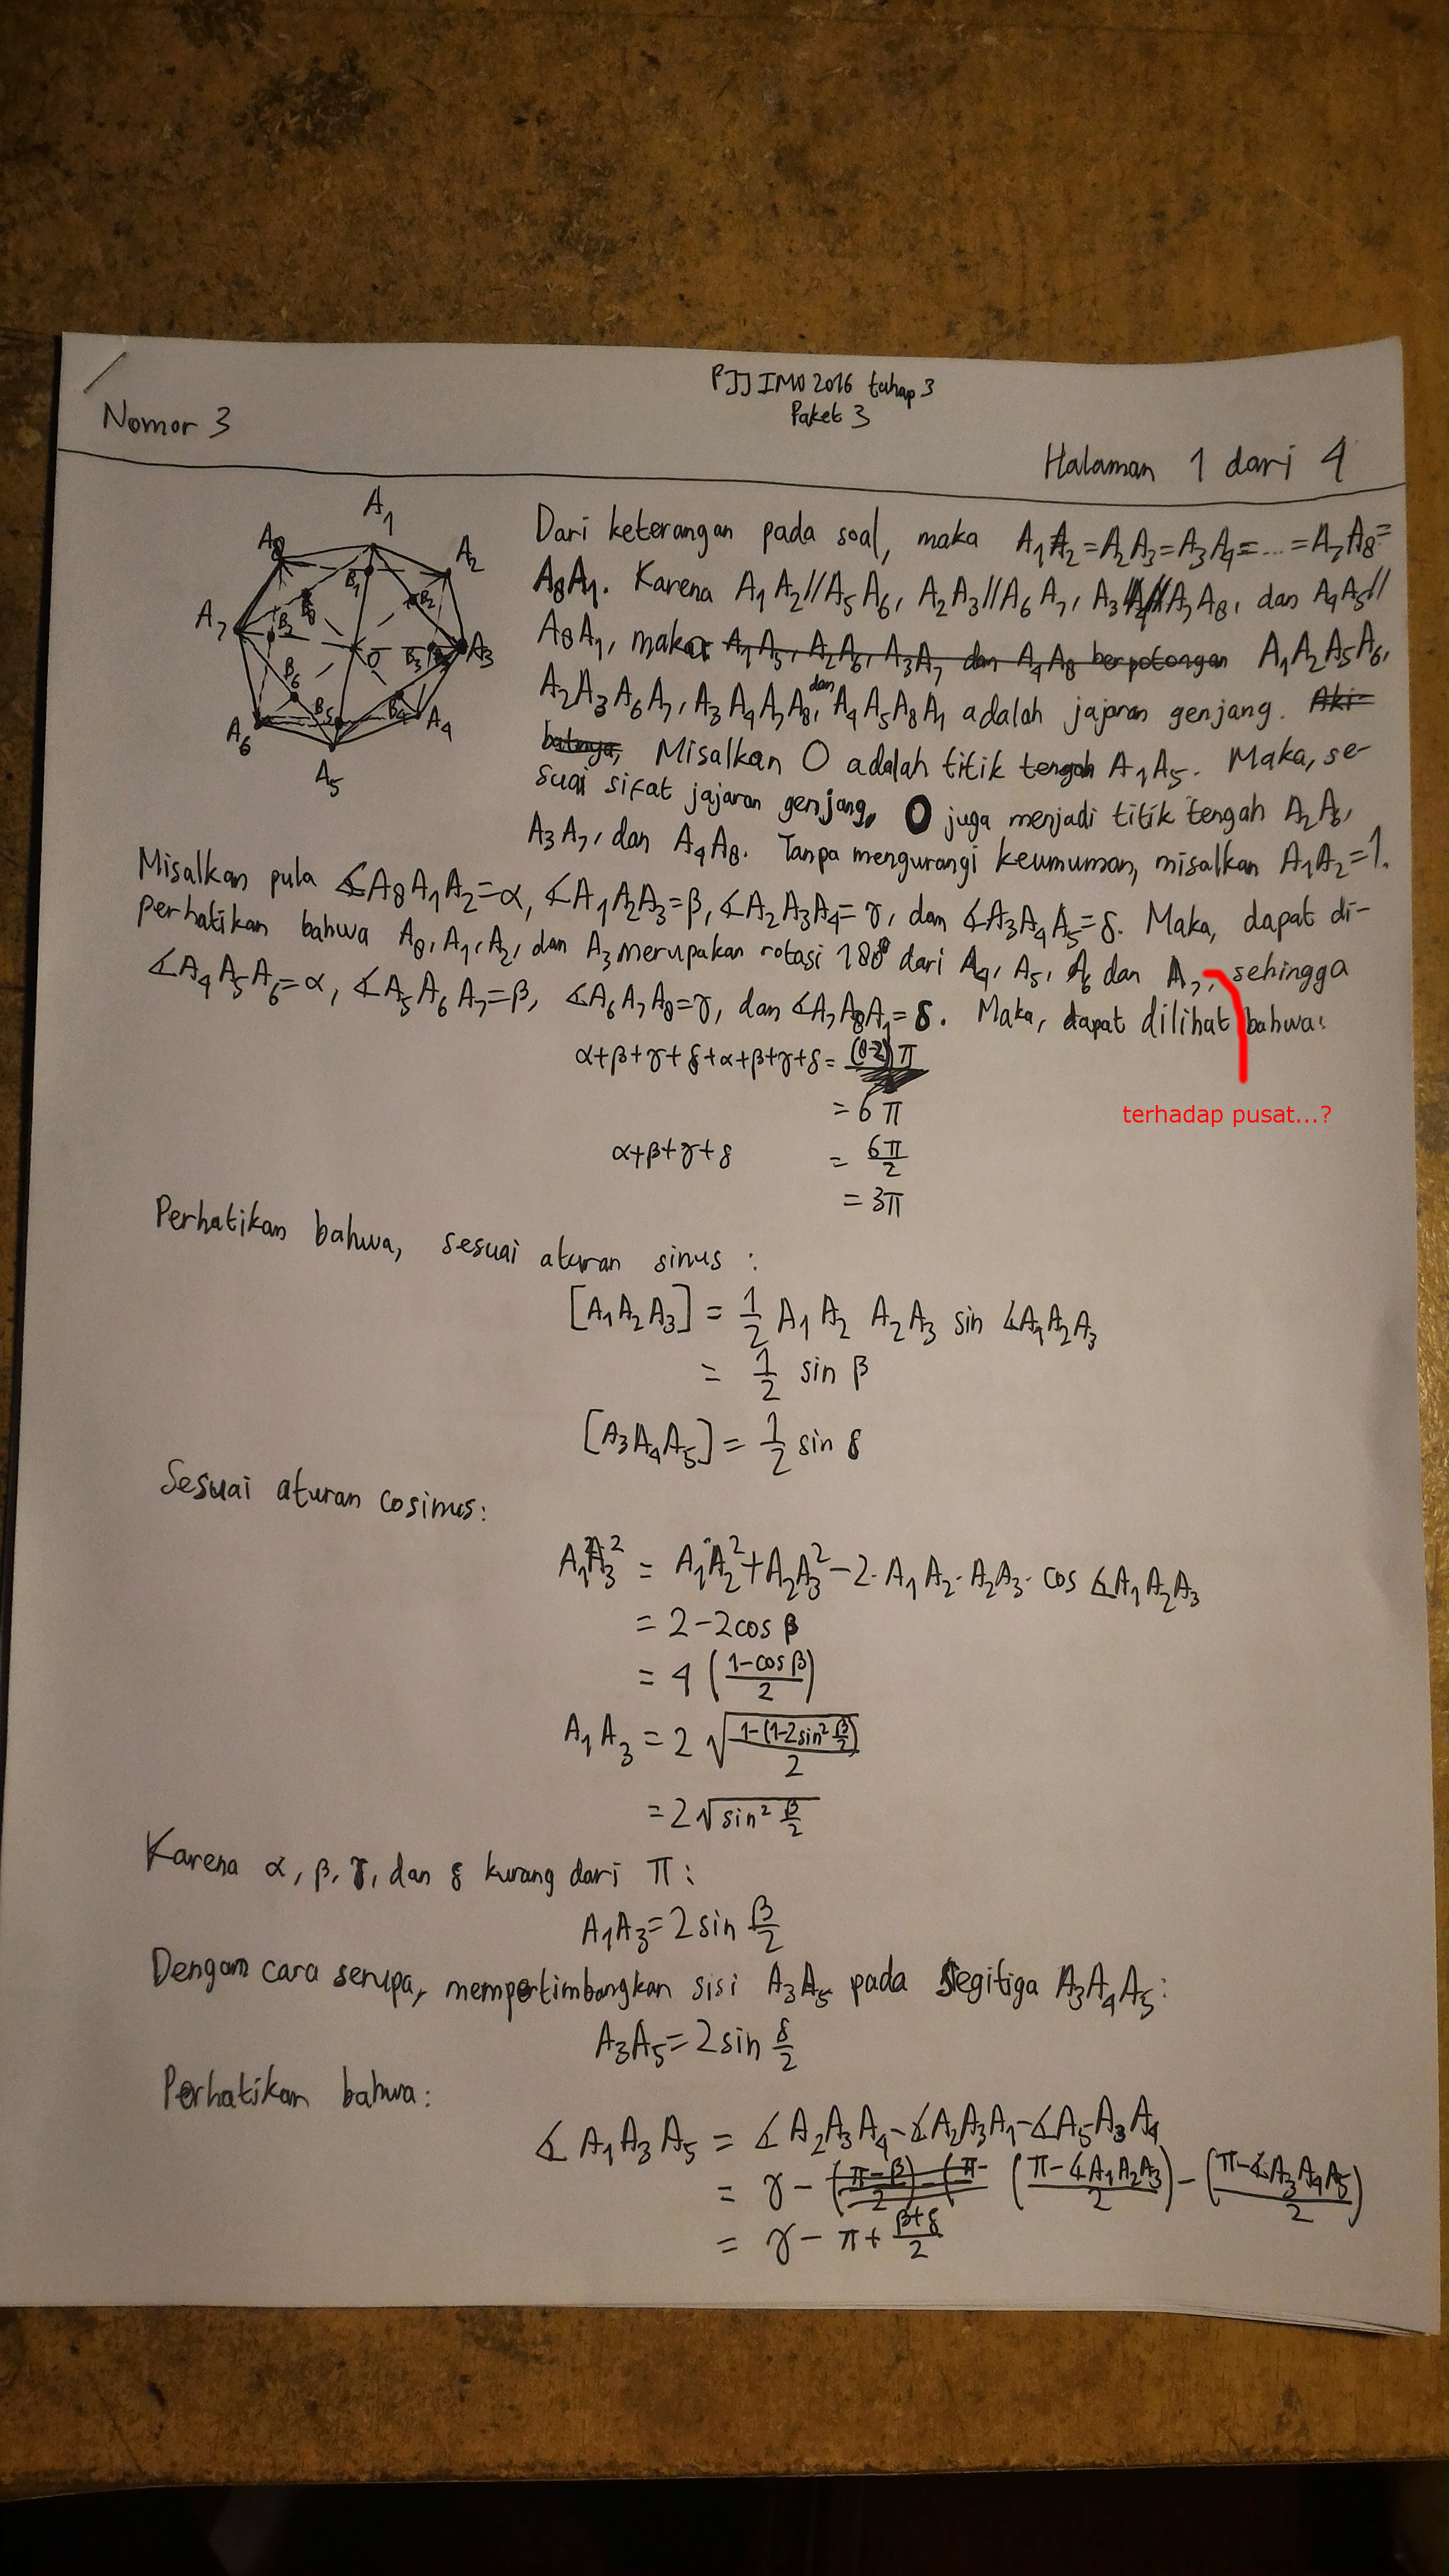 PJJ IMO 2016 tahap 3
Paket 3
Nomor 3
Halaman 1 dari 4
A1
A2
A3
A4
A5
A6
A7
A8
B1
B2
B3
B4
B5
B6
B7
B8
O
Dari keterangan pada soal, maka A1A2=A2A3=A3A4=...=A7A8=
A8A1. Karena A1A2//A5A6, A2A3//A6A7, A3A4//A7A8, dan A4A5//
A8A1, maka A1A5, A2A6, A3A7 dan A4A8 berpotongan A1A2A5A6,
A2A3A6A7, A3A4A7A8, dan A4A5A8A1 adalah jajaran genjang. Aki-
batnya, Misalkan O adalah titik tengah A1A5. Maka, se-
suai sifat jajaran genjang, O juga menjadi titik tengah A2A6,
A3A7, dan A4A8. Tanpa mengurangi keumuman, misalkan A1A2=1.
Misalkan pula ∠A8A1A2=α, ∠A1A2A3=β, ∠A2A3A4=γ, dan ∠A3A4A5=δ. Maka, dapat di-
perhatikan bahwa A8, A1, A2, dan A3 merupakan rotasi 180° dari A4, A5, A6 dan A7, sehingga
∠A4A5A6=α, ∠A5A6A7=β, ∠A6A7A8=γ, dan ∠A7A8A1=δ. Maka, dapat dilihat bahwa:
terhadap pusat...?
α+β+γ+δ+α+β+γ+δ = (8-2)π
= 6π
α+β+γ+δ = 6π/2
= 3π
Perhatikan bahwa, sesuai aturan sinus :
[A1A2A3] = 1/2 A1A2 A2A3 sin ∠A1A2A3
= 1/2 sin β
[A3A4A5] = 1/2 sin δ
Sesuai aturan cosinus:
A1A3² = A1A2²+A2A3²-2·A1A2·A2A3·cos ∠A1A2A3
= 2-2cos β
= 4 ((1-cos β)/2)
A1A3 = 2 √((1-(1-2sin² β/2))/2)
= 2√(sin² β/2)
Karena α, β, γ, dan δ kurang dari π :
A1A3=2sin β/2
Dengan cara serupa, mempertimbangkan sisi A3A5 pada segitiga A3A4A5:
A3A5=2sin δ/2
Perhatikan bahwa:
∠A1A3A5 = ∠A2A3A4-∠A2A3A1-∠A5A3A4
= γ - ((π-β)/2) - (π- ((π-∠A1A2A3)/2) - ((π-∠A3A4A5)/2)
= γ - π + (β+δ)/2